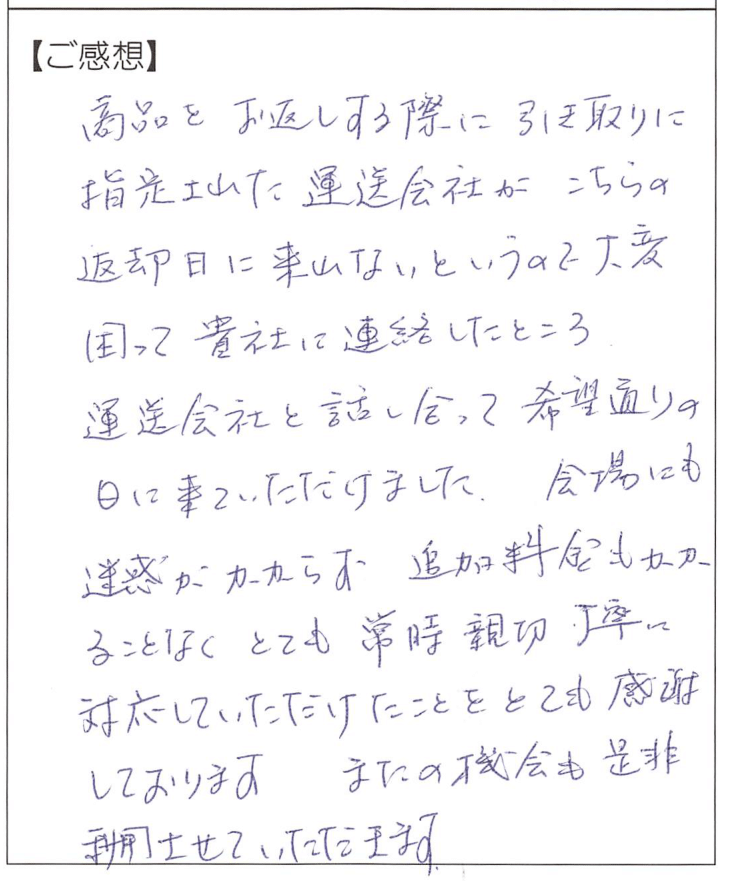 【ご感想】
商品をお返しする際に引き取りに
指定された運送会社がこちらの
返却日に来れないというので大変
困って貴社に連絡したところ
運送会社と話し合って希望通りの
日に来ていただけました。会場にも
迷惑がかからず追加料金もかか
ることなくとても常時親切丁寧に
対応していただけたことをとても感謝
しております　またの機会も是非
利用させていただきます